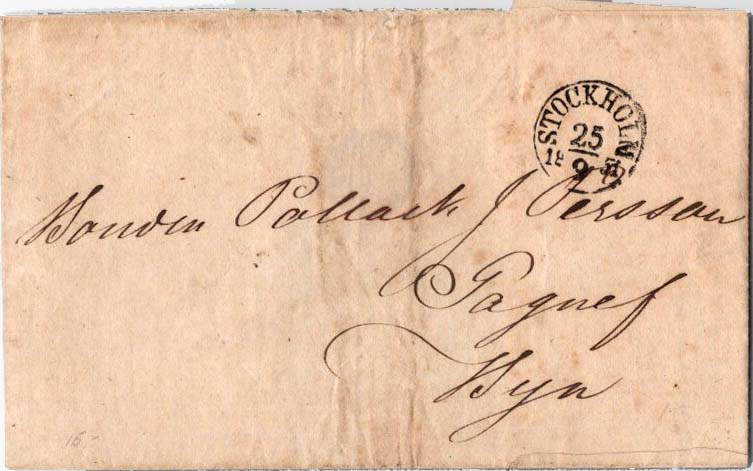 STOCKHOLM
25
9
Bonden Pollack J Persson
Gagnef
Byn
15-